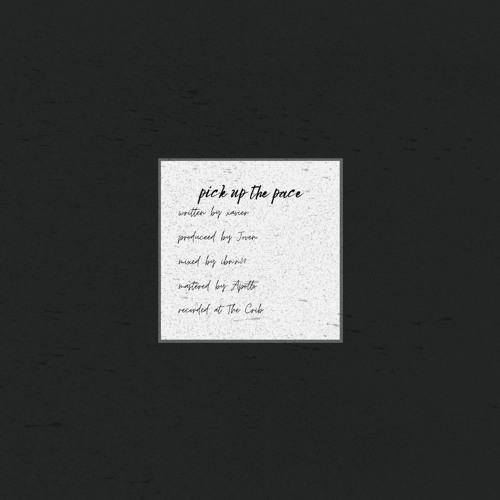 pick up the pace
written by xavier
produceed by Joven
mixed by
mastered by Apollo
recorded at The Crib